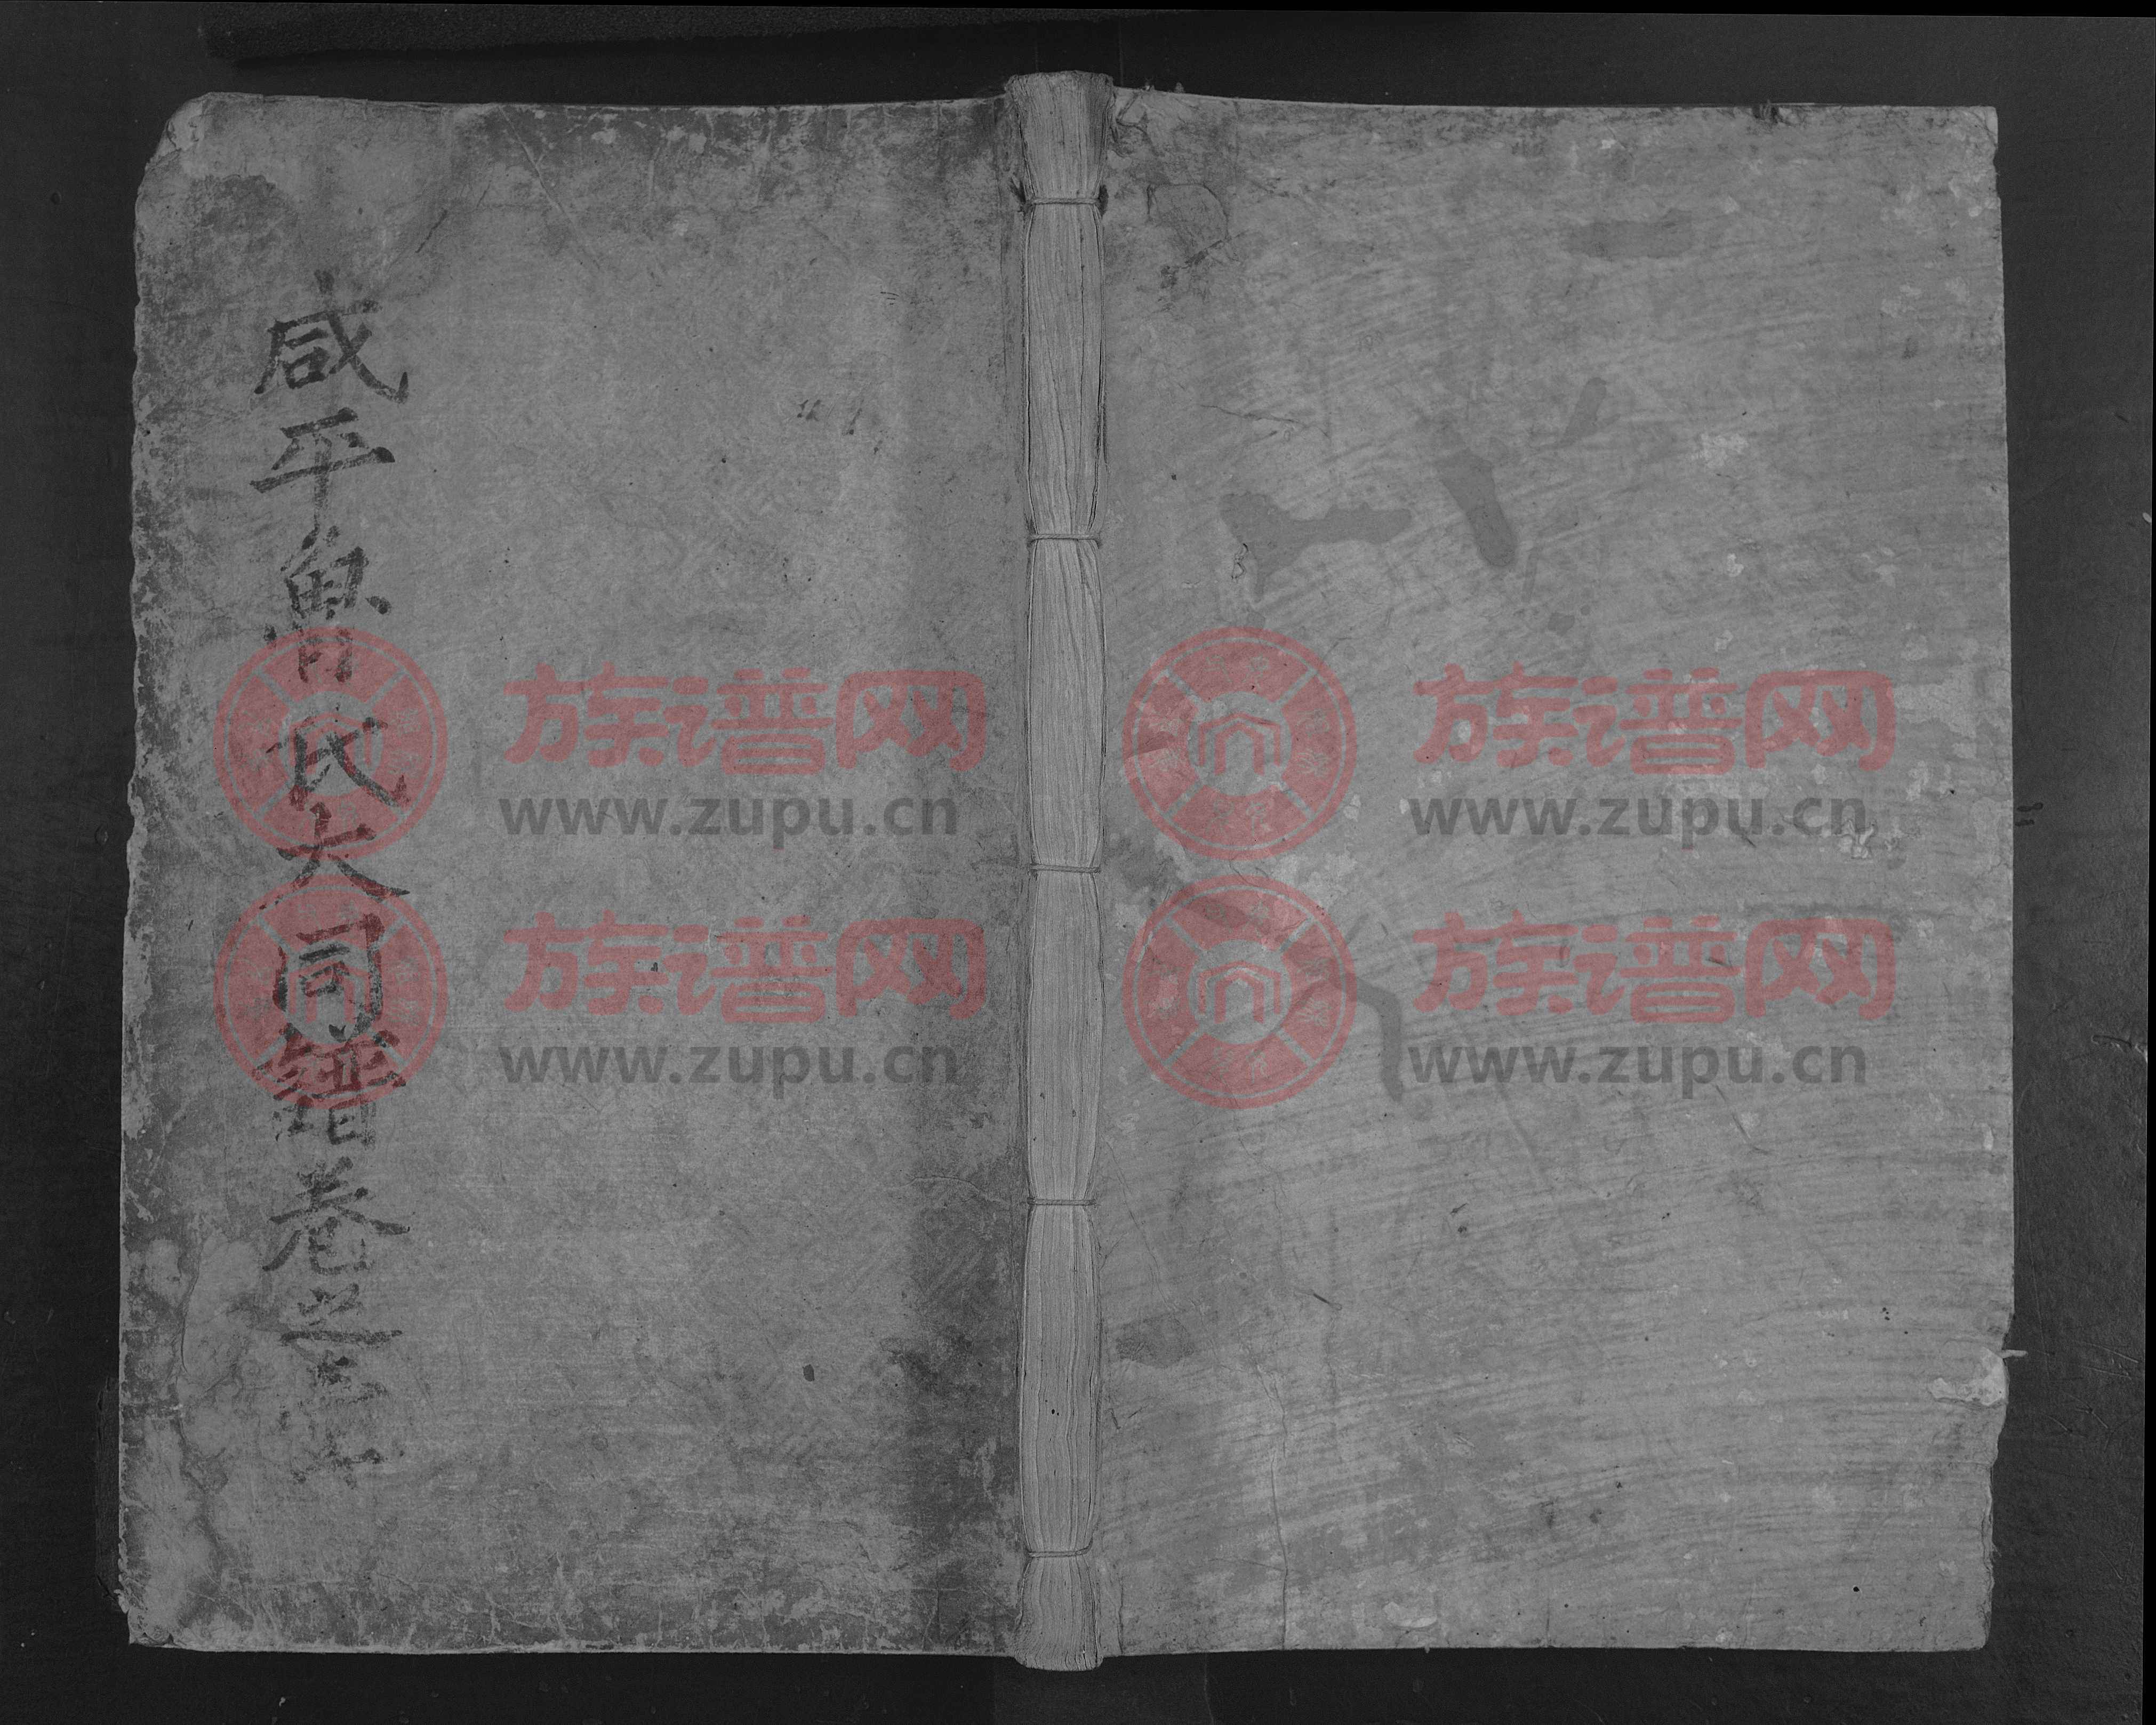 咸平魯氏大同譜卷
族谱网
www.zupu.cn
族谱网
www.zupu.cn
族谱网
www.zupu.cn
族谱网
www.zupu.cn